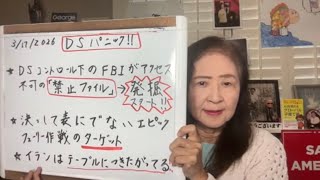 George
3/17/2026 DSパニック!!
★DSコントロール下のFBIがアクセス
不可の「禁止ファイル」→発掘
スタート!!
★決して表にでないエピック
フューリー作戦のターゲット
★イランはテーブルにつきたがってる
SA
AMER